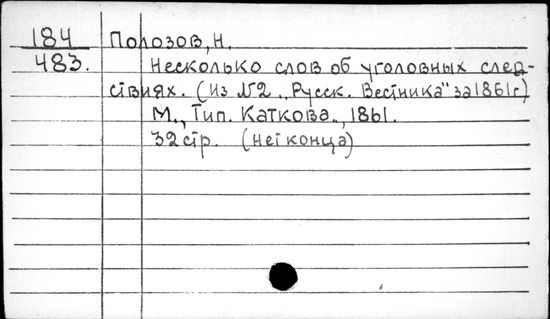 184 Полозов, Н.
483. Несколько слов об уголовных след-
ствиях. (Из №2 „Русск. Вестника" за 1861г)
М., Тип. Каткова., 1861.
32 стр. (нет конца)